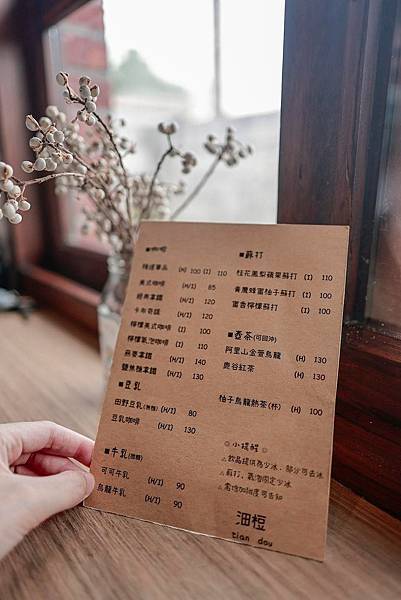 ■咖啡
精選單品 (H) 100 (I) 110
美式咖啡 (H/I) 85
經典拿鐵 (H/I) 120
卡布奇諾 (H/I) 120
檸檬美式咖啡 (I) 110
檸檬氣泡咖啡 (I) 110
燕麥拿鐵 (H/I) 140
鹽焦糖拿鐵 (H/I) 130
■豆乳
田野豆乳(無糖) (H/I) 80
豆乳咖啡 (H/I) 130
■牛乳(微糖)
可可牛乳 (H/I) 90
烏龍牛乳 (H/I) 90
■蘇打
桂花鳳梨蘋果蘇打 (I) 110
青鳳蜂蜜柚子蘇打 (I) 110
蜜香檸檬蘇打 (I) 110
■壺茶(可回沖)
阿里山金萱烏龍 (H) 130
鹿谷紅茶 (H) 130
柚子烏龍熱茶(杯) (H) 100
◎小提醒◎
△飲品提供為少冰,部分可去冰
△蘇打、氣泡固定少冰
△需增加甜度可告知
沺梪
tian dou